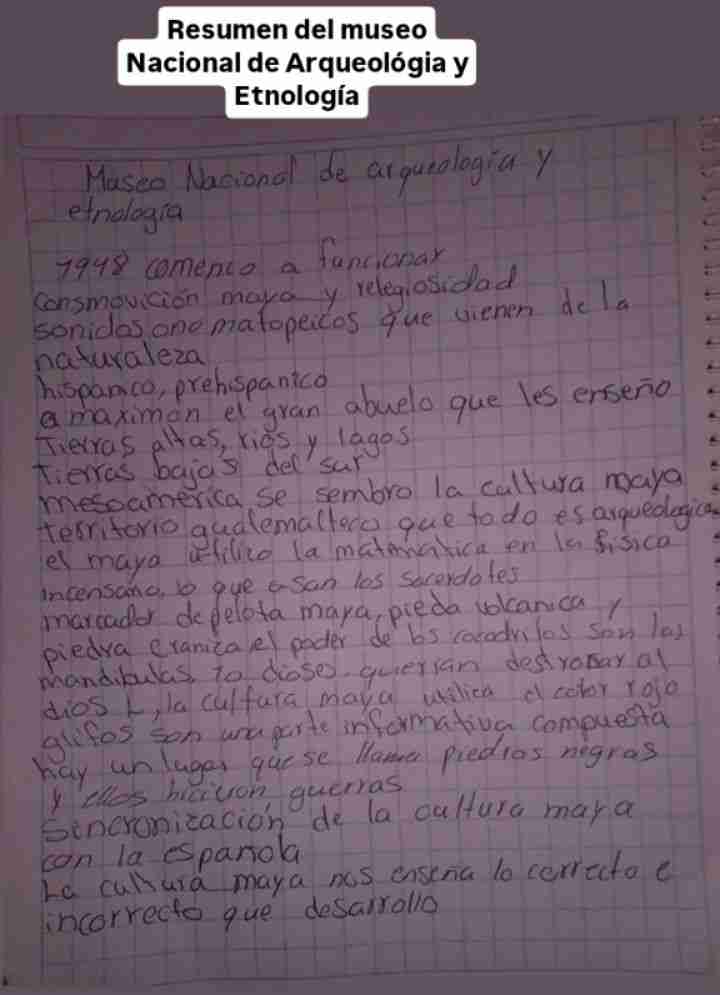 Resumen del museo
Nacional de Arqueológia y
Etnología
Museo Nacional de arqueologia y
etnologia
1948 comenco a funcionar
consmovición maya y relegiosidad
sonidos onomatopeicos que vienen de la
naturaleza
hispanico, prehispanico
a maximon el gran abuelo que les enseño
Tierras altas, rios y lagos
tierras bajas del sur
mesoamerica se sembro la cultura maya
territorio guatemalteco que todo es arqueologico
el maya utilizo la matematica en la fisica
incensario, lo que usan los sacerdotes
marcador de pelota maya, pieda volcanica y
piedra el poder de los cocodrilos son las
mandibulas 10 dioses querian destronar al
dios L, la cultura maya utilica el color rojo
glifos son una parte informativa compuesta
hay un lugar que se llama piedras negras
y ellos hicieron guerras
Sincronización de la cultura maya
con la española
La cultura maya nos enseña lo correcto e
incorrecto que desarrollo